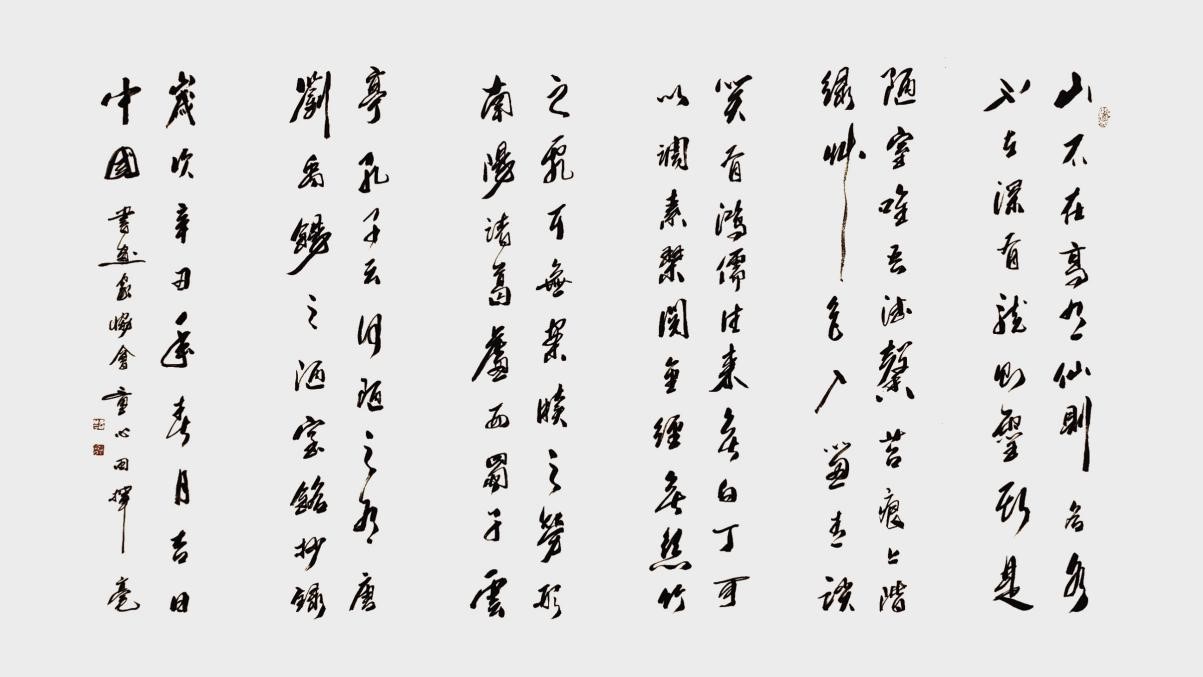 山不在高有仙則名水
不在深有龍則靈斯是
陋室唯吾德馨苔痕上階
綠艸色入簾青談
笑有鴻儒往來無白丁可
以調素琴閱金經無絲竹
之亂耳無案牘之勞形
南陽諸葛廬西蜀子雲
亭孔子云何陋之有唐
劉禹錫之陋室銘抄錄
歲次辛丑年春月吉日
中國書畫家協會童心田揮毫